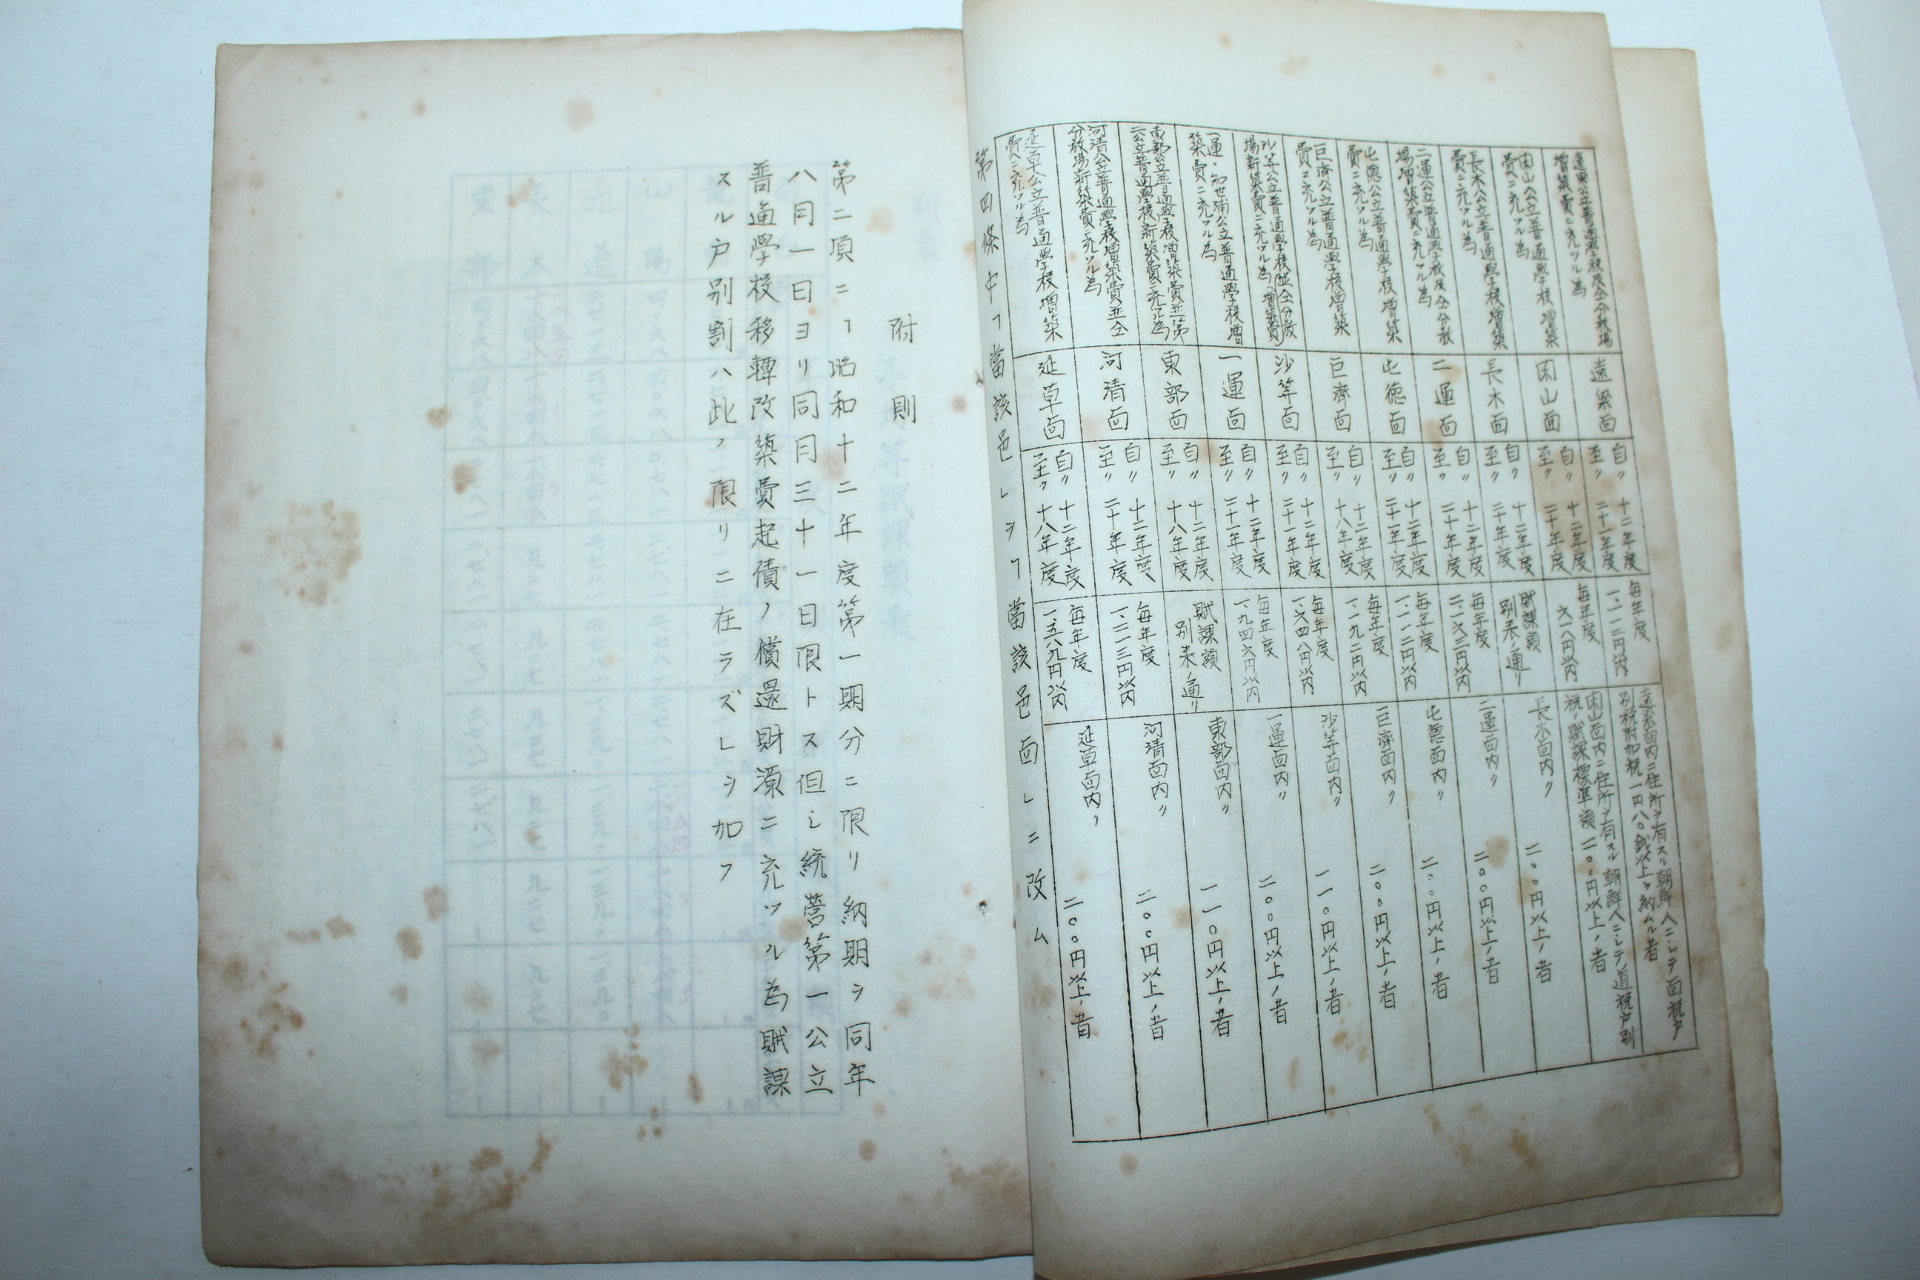 遠梁公立普通學校及仝分教場
増築費ニ充ツル為
遠梁面
自〃十二年度
至〃二十一年度
毎年度
一、一一二円以内
遠梁面内ニ住所ヲ有スル朝鮮人ニシテ面税戸
別税附加税一円八〇銭以上ヲ納ムル者
閑山公立普通學校増築
費ニ充ツル為
閑山面
自〃十二年度
至〃二十一年度
毎年度
六二八円以内
閑山面内ニ住所ヲ有スル朝鮮人ニシテ道税戸別
税ノ賦課標準額二〇〇円以上ノ者
長木公立普通學校増築
費ニ充ツル為
長木面
自〃十二年度
至〃二十年度
賦課額
別表ノ通リ
長木面内〃 二〇〇円以上ノ者
二運公立普通學校及仝分教
場増築費ニ充ツル為
二運面
自〃十二年度
至〃二十年度
毎年度
二、〇六三円以内
二運面内〃 二〇〇円以上ノ者
屯徳公立普通學校増築
費ニ充ツル為
屯徳面
自〃十二年度
至〃二十一年度
毎年度
一、一一二円以内
屯徳面内〃 二〇〇円以上ノ者
巨濟公立普通學校増築
費ニ充ツル為
巨濟面
自〃十二年度
至〃十八年度
毎年度
一、一九二円以内
巨濟面内〃 二〇〇円以上ノ者
沙等公立普通學校並仝分教
場新築費ニ充ツル為
沙等面
自〃十二年度
至〃二十一年度
毎年度
一、六四八円以内
沙等面内〃 一一〇円以上ノ者
一運、知世浦公立普通學校増
築費ニ充ツル為
一運面
自〃十二年度
至〃二十一年度
毎年度
一、九四六円以内
一運面内〃 二〇〇円以上ノ者
東部公立普通學校増築費並第
二公立普通學校新築費ニ充ツル為
東部面
自〃十二年度
至〃十八年度
賦課額
別表ノ通リ
東部面内〃 一一〇円以上ノ者
河清公立普通學校増築費並仝
分教場新築費ニ充ツル為
河清面
自〃十二年度
至〃二十年度
毎年度
一、二一三円以内
河清面内〃 二〇〇円以上ノ者
延草公立普通學校増築
費ニ充ツル為
延草面
自〃十二年度
至〃十八年度
毎年度
一、五八九円以内
延草面内〃 二〇〇円以上ノ者
第四條中「當該邑」ヲ「當該邑面」ニ改ム
附則
第二項ニ「昭和十二年度第一期分ニ限リ納期ヲ同年
八月一日ヨリ同月三十一日限トス但シ統營第一公立
普通學校移轉改築費起債ノ償還財源ニ充ツル為賦課
スル戸別割ハ此ノ限リニ在ラズ」ヲ加フ